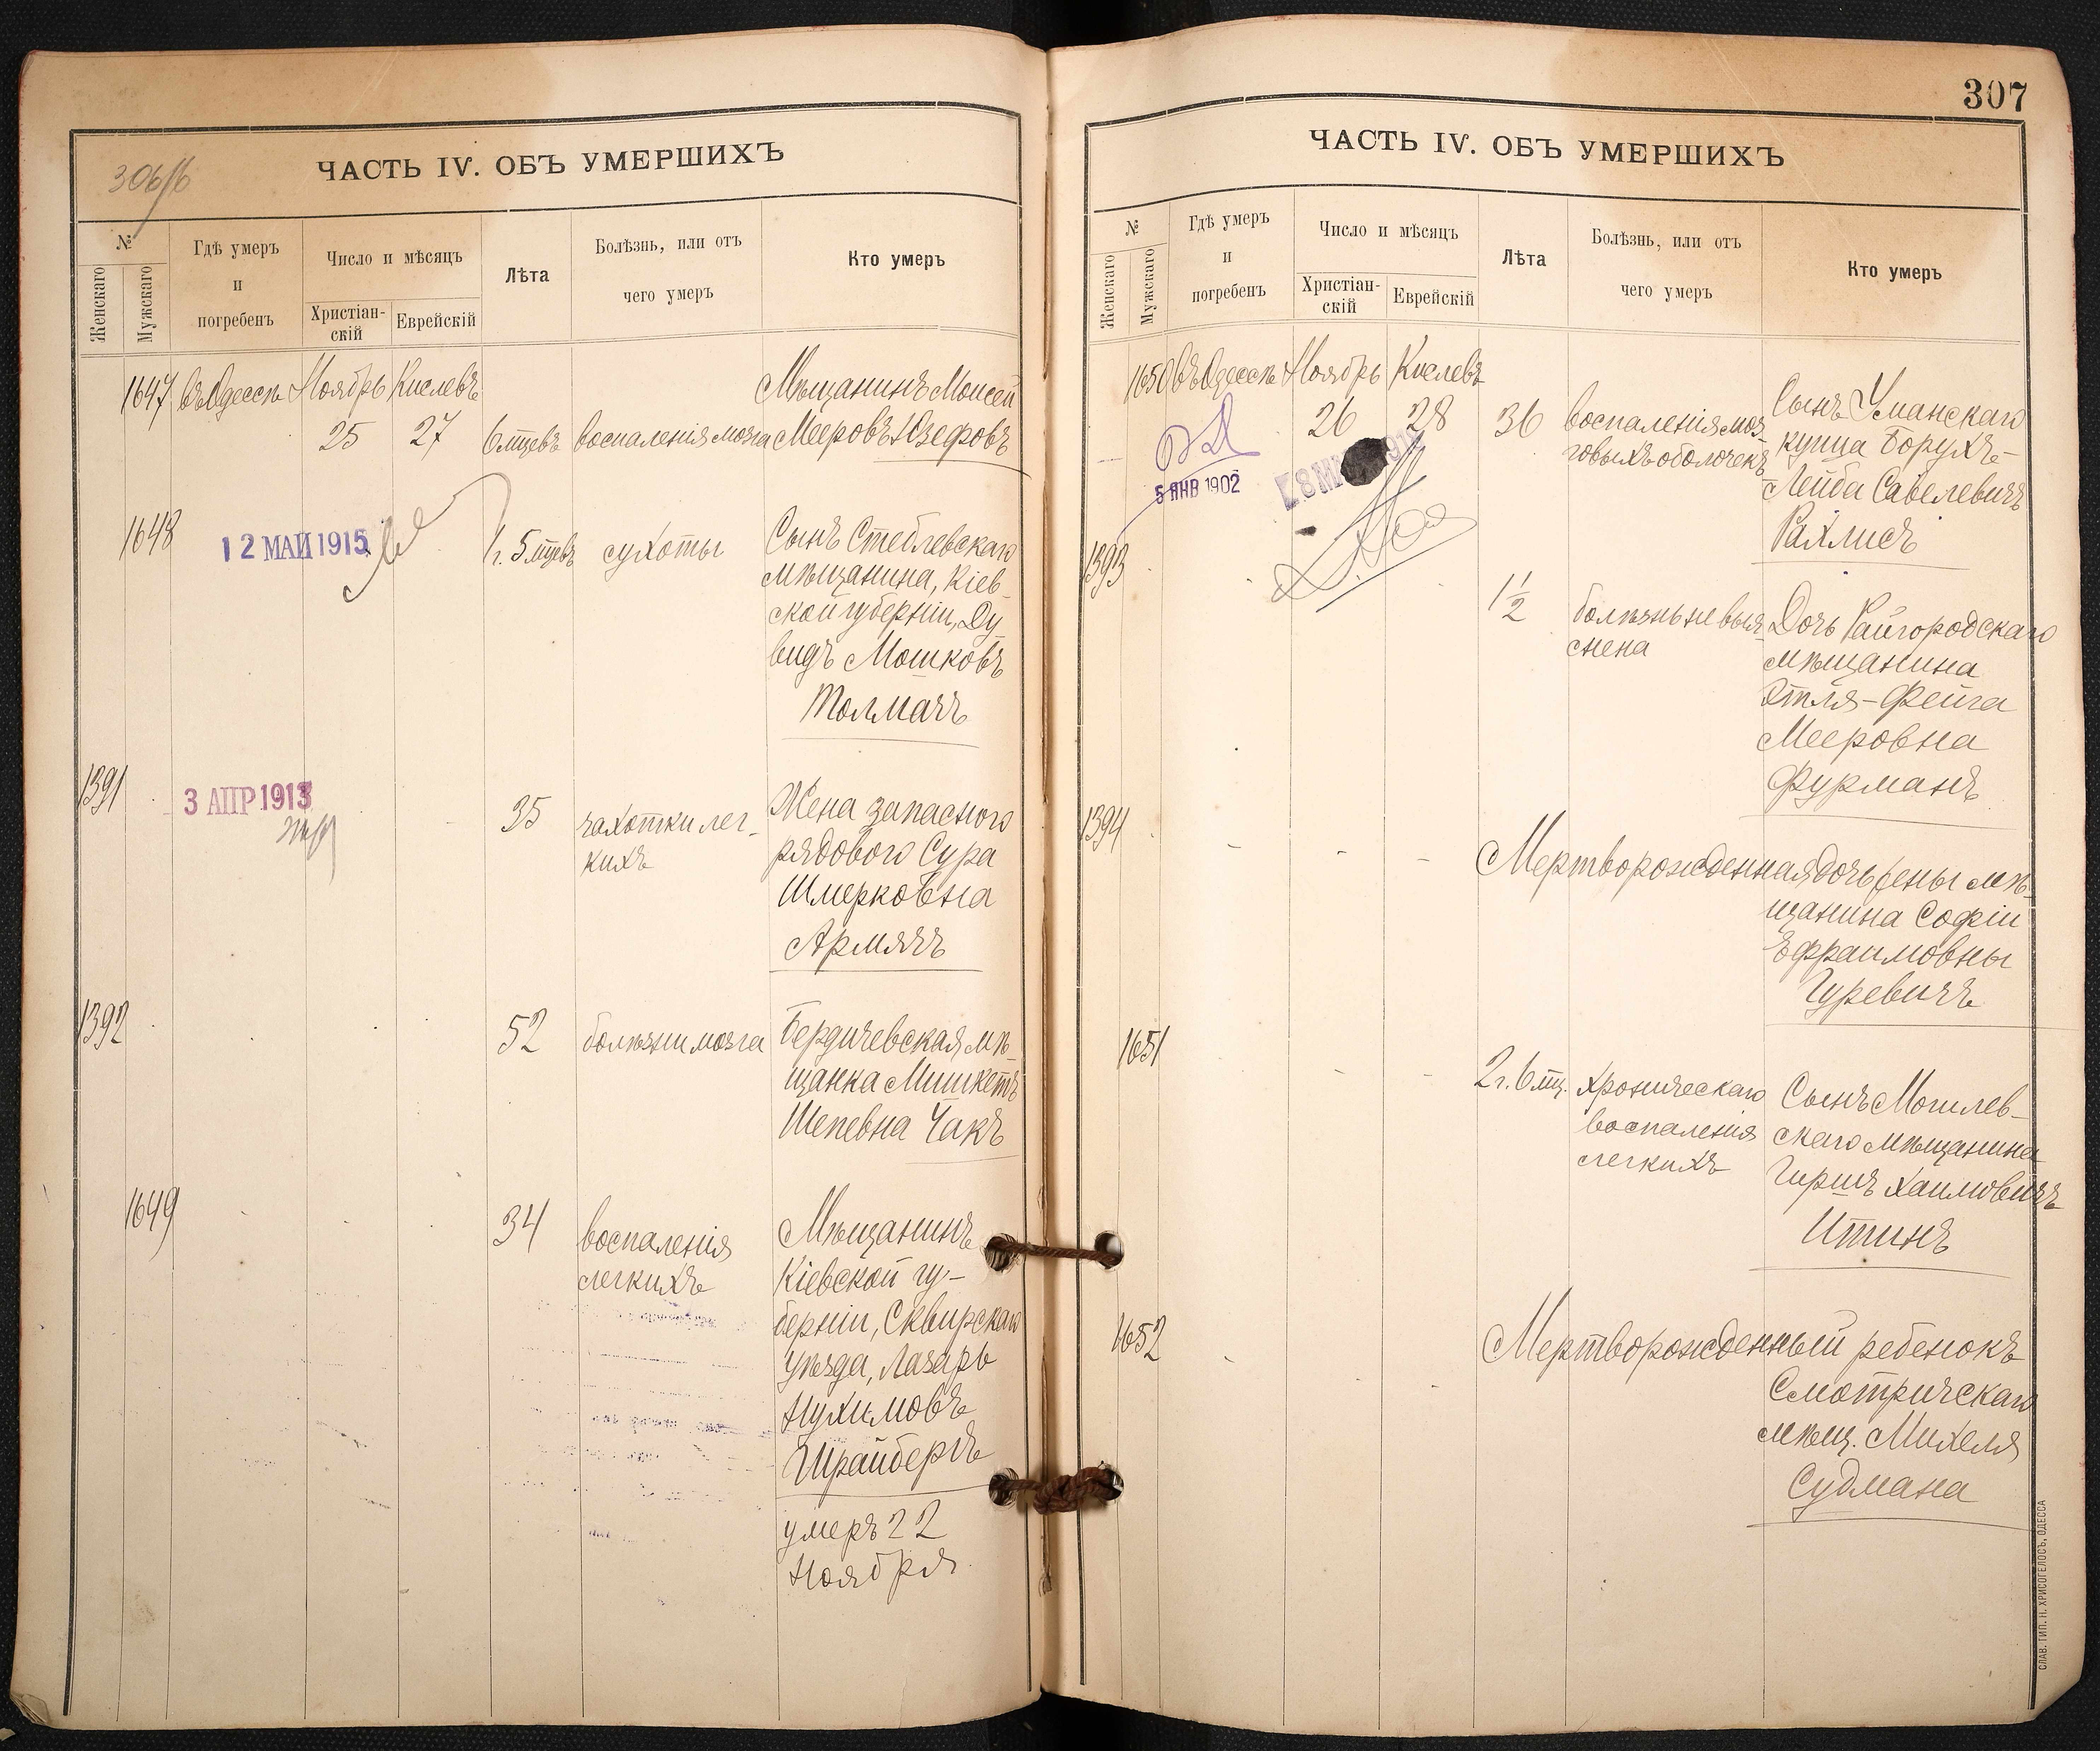 306/б
ЧАСТЬ IV. ОБЪ УМЕРШИХЪ
№
Женскаго
Мужскаго
Гдѣ умеръ
и
погребенъ
Число и мѣсяцъ
Христіан-
скій
Еврейскій
Лѣта
Болѣзнь, или отъ
чего умеръ
Кто умеръ
1647
въ Одессѣ
Ноябрь
25
Кислевъ
27
6 мцевъ
воспаленія мозга
Мѣщанинъ Моисей
Мееровъ Юзефовъ
1648
12 МАЙ 1915
1 г. 5 мцевъ
сухоты
Сынъ Стеблевскаго
мѣщанина, Кіев-
ской губерніи, Ду
видъ Мошковъ
Толмачъ
1391
3 АПР 1913
35
чахотки лег-
кихъ
Жена запасного
рядового Сура
Шмерковна
Армячъ
1392
52
болѣзни мозга
Бердичевская мѣ-
щанка Мишкетъ
Шепевна Чакъ
1649
34
воспаленія
легкихъ
Мѣщанинъ
Кіевской гу-
берніи, Сквирскаго
уѣзда, Лазарь
Нухимовъ
Шрайбергъ
умеръ 22
Ноября
307
ЧАСТЬ IV. ОБЪ УМЕРШИХЪ
№
Женскаго
Мужскаго
Гдѣ умеръ
и
погребенъ
Число и мѣсяцъ
Христіан-
скій
Еврейскій
Лѣта
Болѣзнь, или отъ
чего умеръ
Кто умеръ
1650
въ Одессѣ
Ноябрь
26
Кислевъ
28
5 ЯНВ 1902
36
воспаленія моз-
говыхъ оболочекъ
Сынъ Уманскаго
купца Борухъ-
Лейба Савелевичъ
Рахлисъ
1393
1 1/2
болѣзнь не выя-
снена
Дочь Райгородскаго
мѣщанина
Этля-Фейга
Мееровна
Фурманъ
1394
Мертворожденная дочь жены мѣ-
щанина Софіи
Эфраимовны
Гуревичъ
1651
2 г. 6 мц.
хроническаго
воспаленія
легкихъ
Сынъ Могилев-
скаго мѣщанина
Гиршъ Хаимовичъ
Итинъ
1652
Мертворожденный ребенокъ
Смотричскаго
мѣщ. Михеля
Судмана
СЛАВ. ТИП. Н. ХРИСОГЕЛОСЪ, ОДЕССА